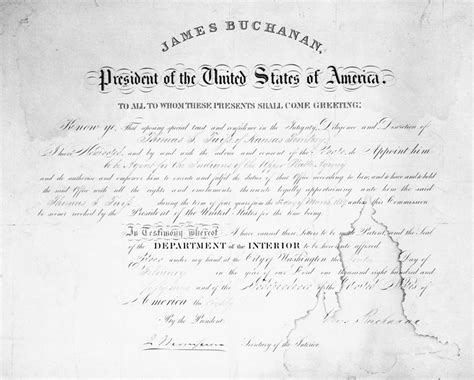 JAMES BUCHANAN,
President of the United States of America.
TO ALL TO WHOM THESE PRESENTS SHALL COME GREETING:
Know ye, That reposing special trust and confidence in the Integrity, Diligence and Discretion of
Thomas S. of Kansas
I have and by and with the advice and consent of the do Appoint him
to be Agent for the Indians of the Upper Platte Agency
and do authorize and empower him to execute and fulfil the duties of that Office according to law, and to have and to hold the
said office with all the rights and emoluments thereunto legally appertaining unto him the said
Thomas S. during the term of four years from the day of
the President of the United States for the time being.
In Testimony whereof I have caused these Letters to be made Patent and the Seal
of the DEPARTMENT of the INTERIOR to be hereunto affixed.
Given under my hand at the City of Washington the Day of
February in the year of our Lord one thousand eight hundred and
and of the Independence of the United States of
America the
By the President:
Secretary of the Interior